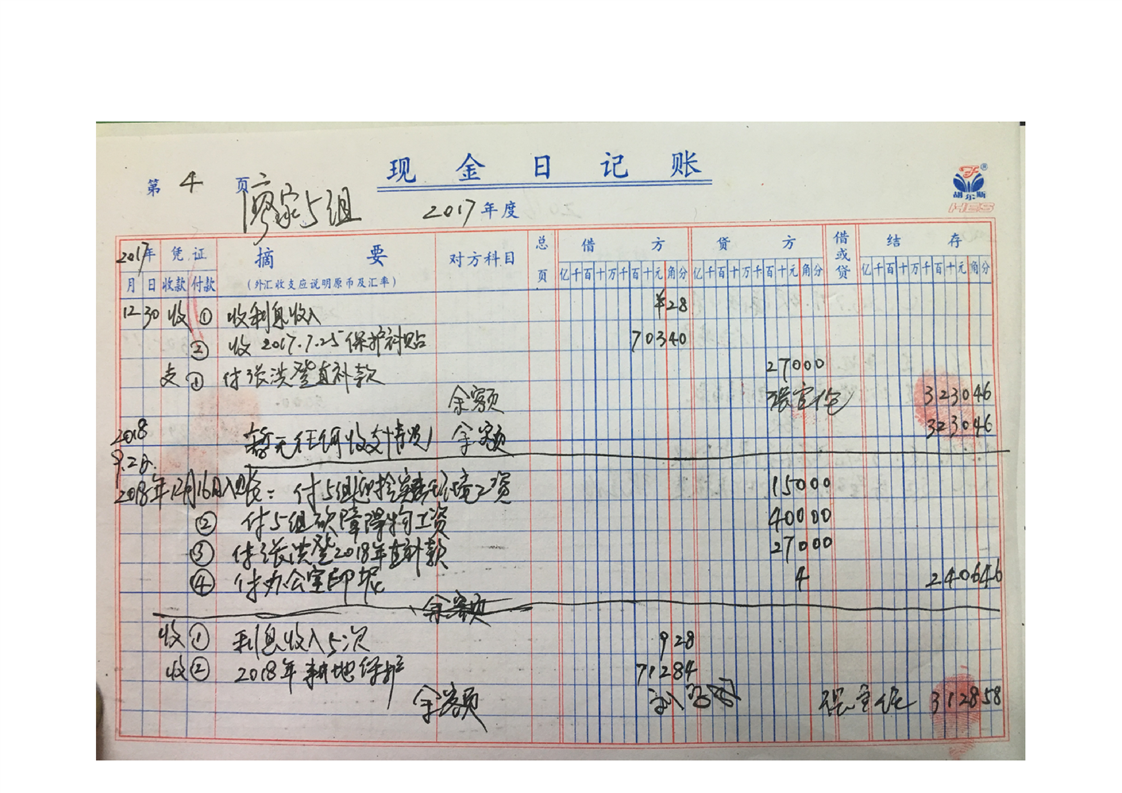 现金日记账
第 4 页 廖家5组 2017年度
胡尔斯
HES
2017年 凭证 摘要 对方科目 总页 借方 贷方 借或贷 结存
月 日 收款 付款 (外汇收支应说明原币及汇率) 亿千百十万千百十元角分 亿千百十万千百十元角分 亿千百十万千百十元角分
12 30 收 ① 收利息收入 ¥28
② 收2017.7.25保护补贴 70340
支 ① 付张洪登直补款 27000
余额 323046
2018 9.28. 暂无任何收支情况 余额 323046
2018年12月16日入账: 付5组 工资 15000
② 付5组砍障碍物工资 40000
③ 付张洪登2018年直补款 27000
④ 付办公室印泥 4 240646
余额
收 ① 利息收入5次 928
收 ② 2018年耕地保护 71284
余额 312858